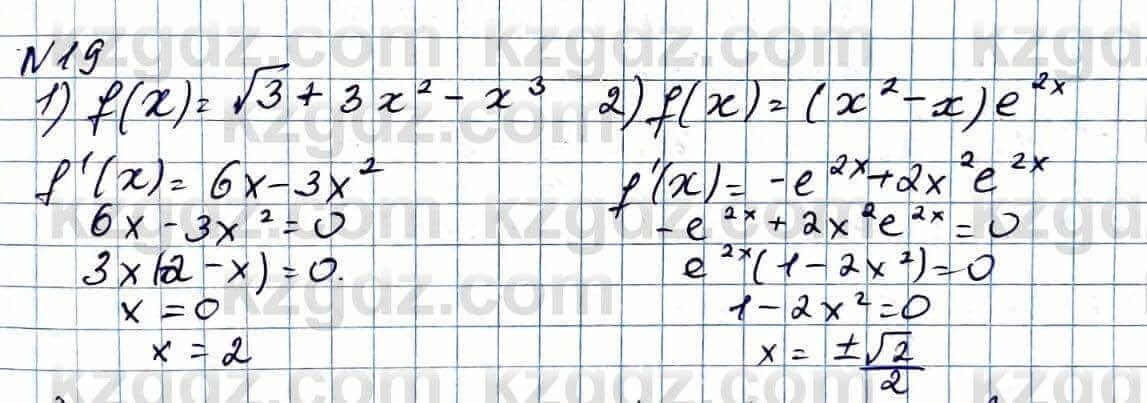 N19
1) f(x) = √3 + 3x² - x³
f'(x) = 6x - 3x²
6x - 3x² = 0
3x(2 - x) = 0.
x = 0
x = 2
2) f(x) = (x² - x)e^2x
f'(x) = -e^2x + 2x²e^2x
-e^2x + 2x²e^2x = 0
e^2x(1 - 2x²) = 0
1 - 2x² = 0
x = ±√2/2
kzgdz.com